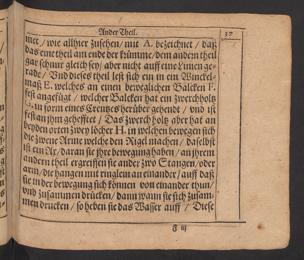 Ander Theil.
37
met / wie allhier zusehen / mit A. bezeichnet / daß
das eine theil am ende der krümme / dem andern theil
gar schnur gleich sey / aber nicht auff eine Linien ge-
rade / Vnd dieses theil lest sich ein in ein Winckel-
maß E. welches an einen beweglichen Balcken F.
fest angefügt / welcher Balcken hat ein zwerchholtz
G. in form eines Creutzes herüber gehend / vnd ist
fest an jhm gehefftet / Das zwerchholtz aber hat an
beyden orten zwey löcher H. in welchen bewegen sich
die zweene Arme welche den Rigel machen / daselbst
ist ein Ax / daran sie jhre bewegung haben / an jhrem
andern theil ergreiffen sie ander zwo Stangen / oder
arm / die hangen mit ringlein an einander / auff daß
sie in der bewegung sich können von einander thun /
vnd zusammen drücken / dann wann sie sich zusam-
men drucken / so heben sie das Wasser auff / Diese